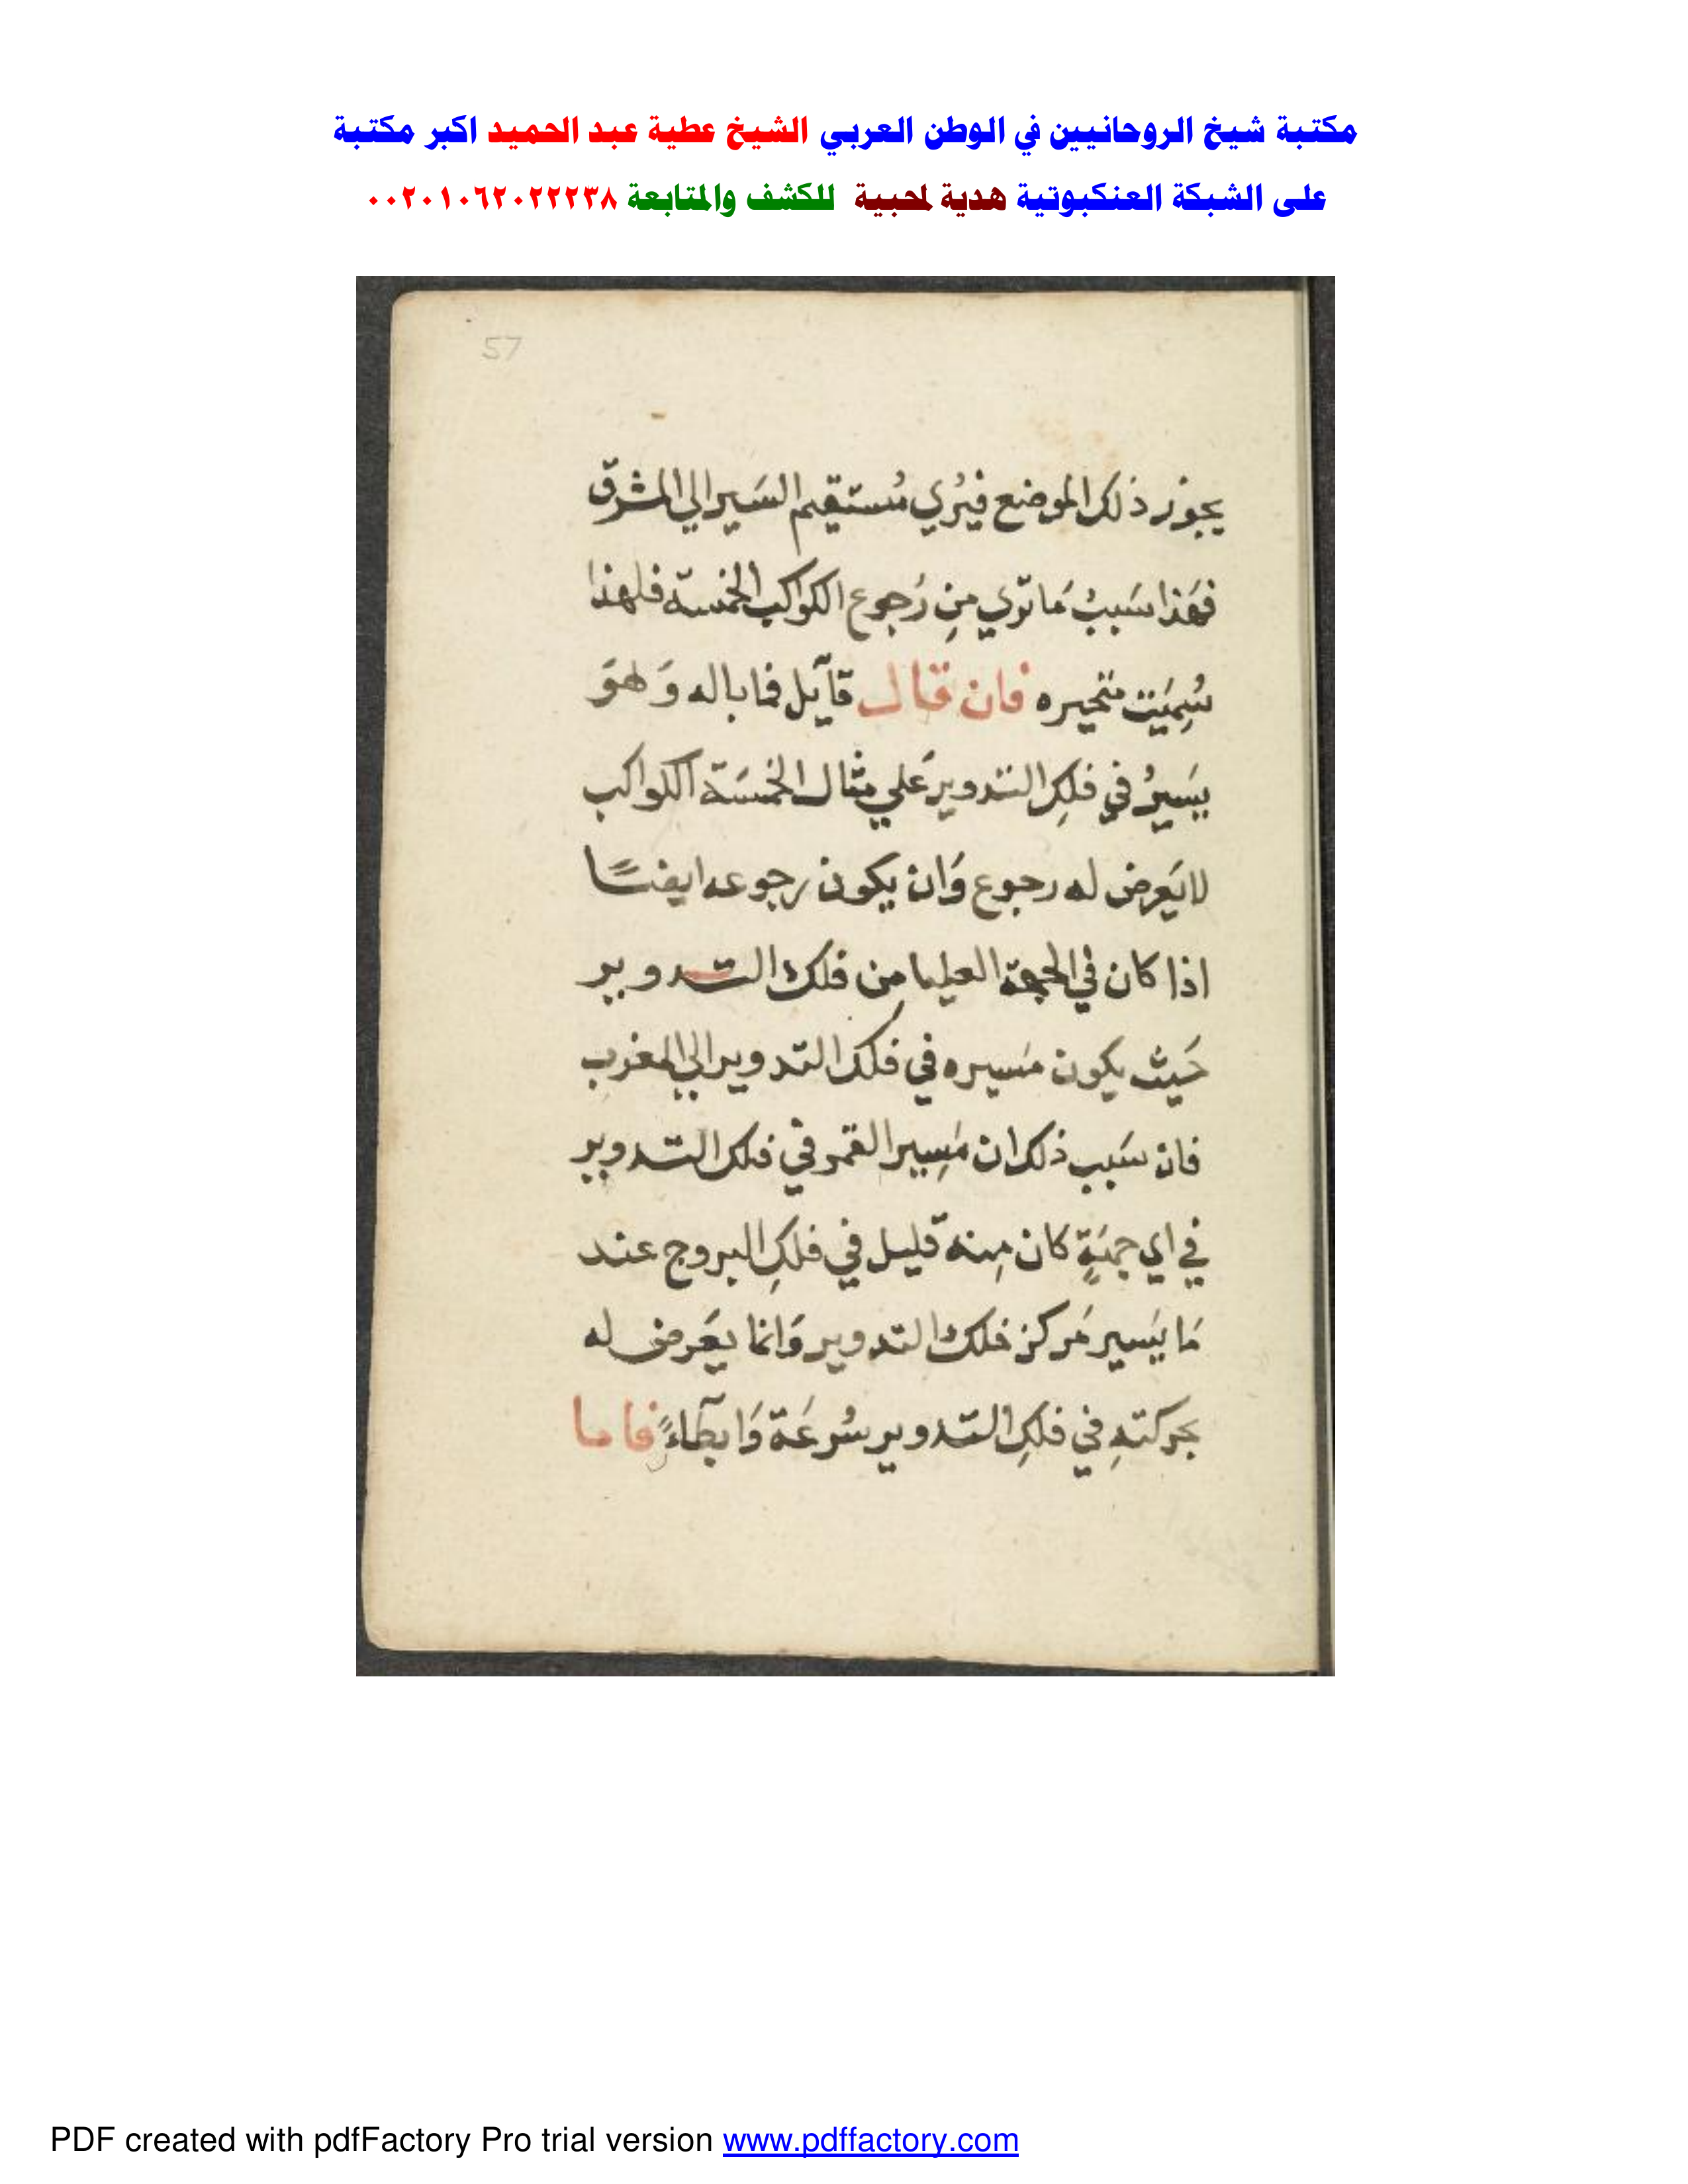 مكتبة شيخ الروحانيين في الوطن العربي الشيخ عطية عبد الحميد اكبر مكتبة
على الشبكة العنكبوتية هدية لمحبية للكشف والمتابعة ٠٠٢٠١٠٦٢٠٢٢٢٣٨
57
يجوز ذلك الموضع فيُري مُستقيم السَير الي المشرق
فهَذا سَببُ مَا تَري مِن رُجوع الكواكب الخمسة فلهذا
سُمِيَت متحيره فان قال قآيل فما باله وَ هوَ
يسَيرُ في فلكِ التدوير عَلي مثال الخمسَة الكواكب
لا يَعرض له رجوع وَان يكون رجوعه ايضًا
اذا كان في الجهة العليا من فلك التدوير
حَيث يكون مَسيره في فلك التدوير الي المغرب
فان سَبب ذلك ان مَسِير القمر في فلك التدوير
في اي جهَةٍ كان مِنه قليل في فلكِ البروج عند
مَا يسَير مَركز فلك التدوير وَانما يعَرض له
بحركتهِ في فلكِ التدوير سُرعَة وَابطآءً فاما
PDF created with pdfFactory Pro trial version www.pdffactory.com